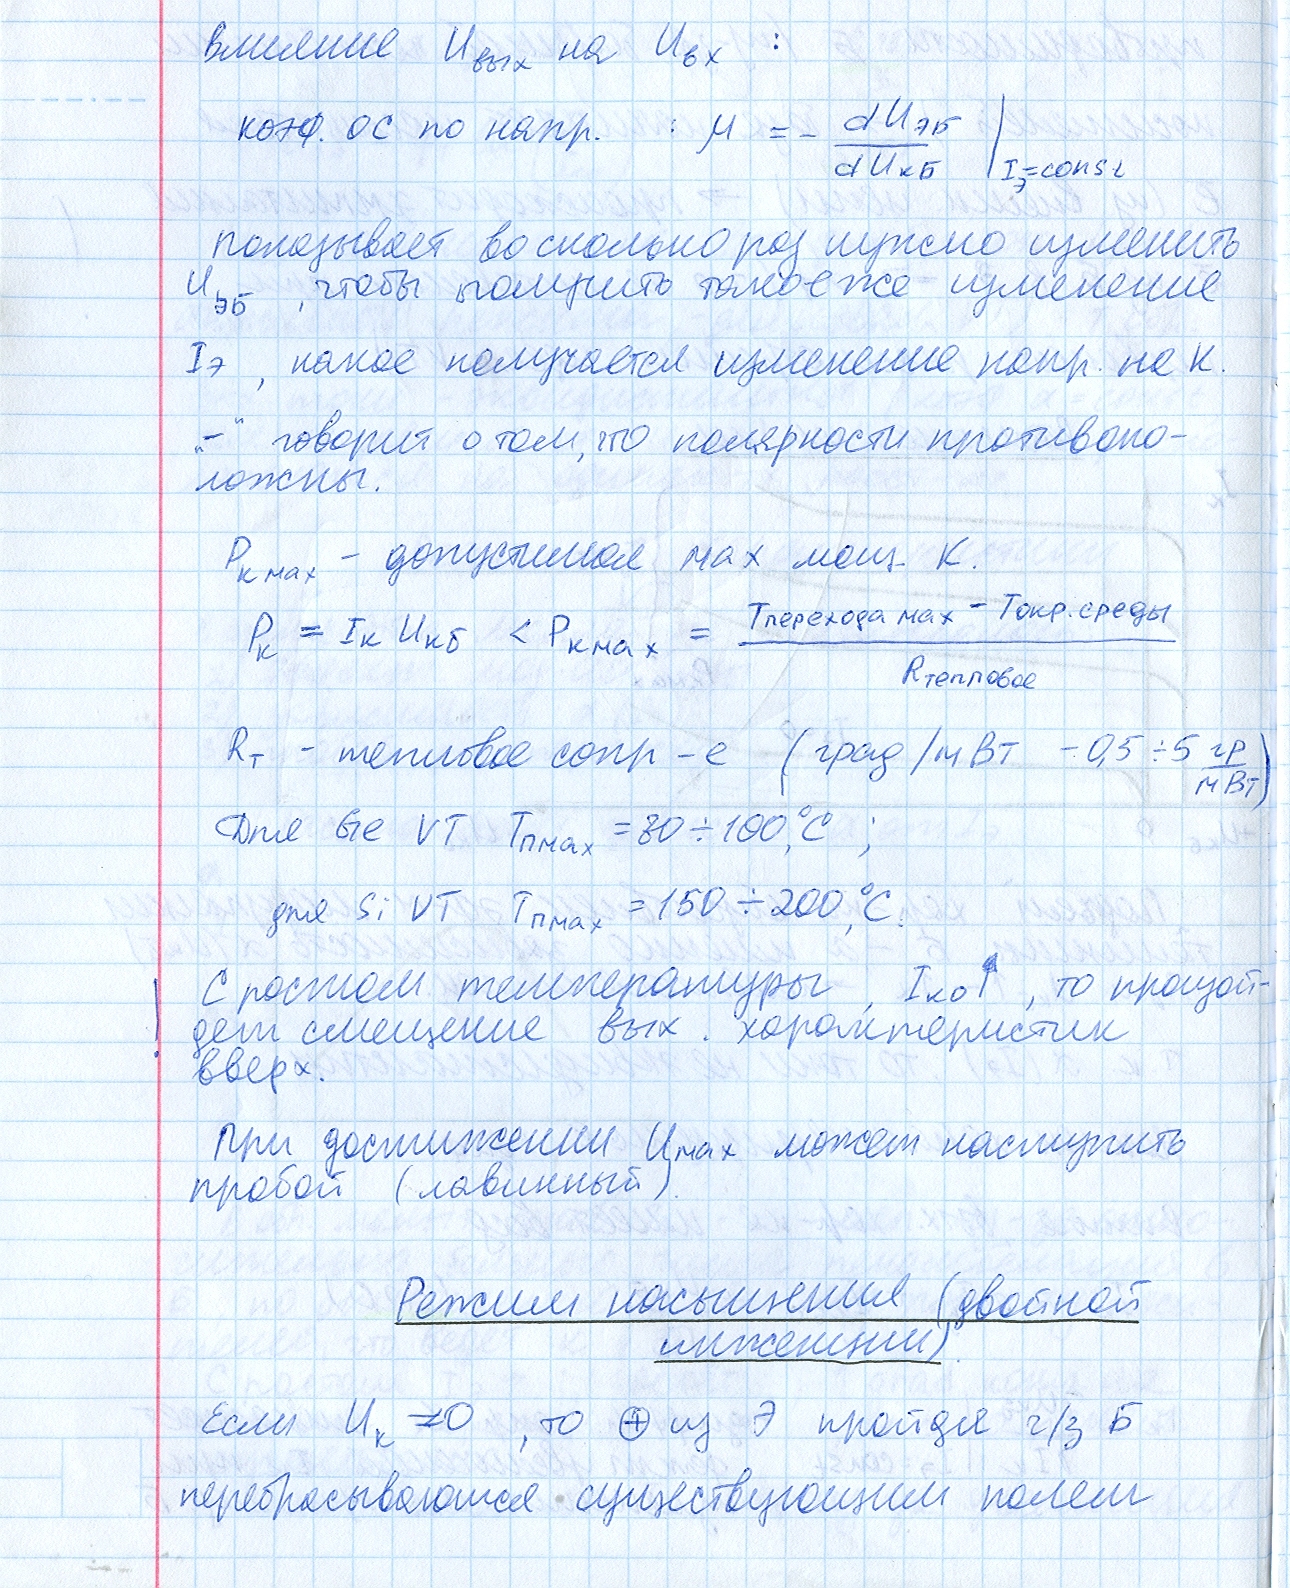 влияние Uвых на Uвх :
коэф. ОС по напр. : μ = - dUЭБ / dUКБ | IЭ=const
показывает во сколько раз нужно изменить
UЭБ , чтобы получить такое же изменение
IЭ , какое получается изменение напр. на К.
„-“ говорит о том, что полярности противопо-
ложны.
Pк мах – допустимая мах мощ. К.
Pк = Iк UкБ < Pк мах = Tперехода мах - Tокр. среды / Rтепловое
RТ – тепловое сопр-е (град/мВт - 0,5 ÷ 5 гр/мВт)
Для Ge VT Tп мах = 80 ÷ 100,°C ;
для Si VT Tп мах = 150 ÷ 200,°C.
! С ростом температуры , Iко↑ , то произой-
дет смещение вых. характеристик
вверх.
При достижении Uмах может наступить
пробой (лавинный).
Режим насыщения (двойной
инжекции).
Если Uк =0 , то ⊕ из Э пройдя ч/з Б
перебрасываются существующим полем